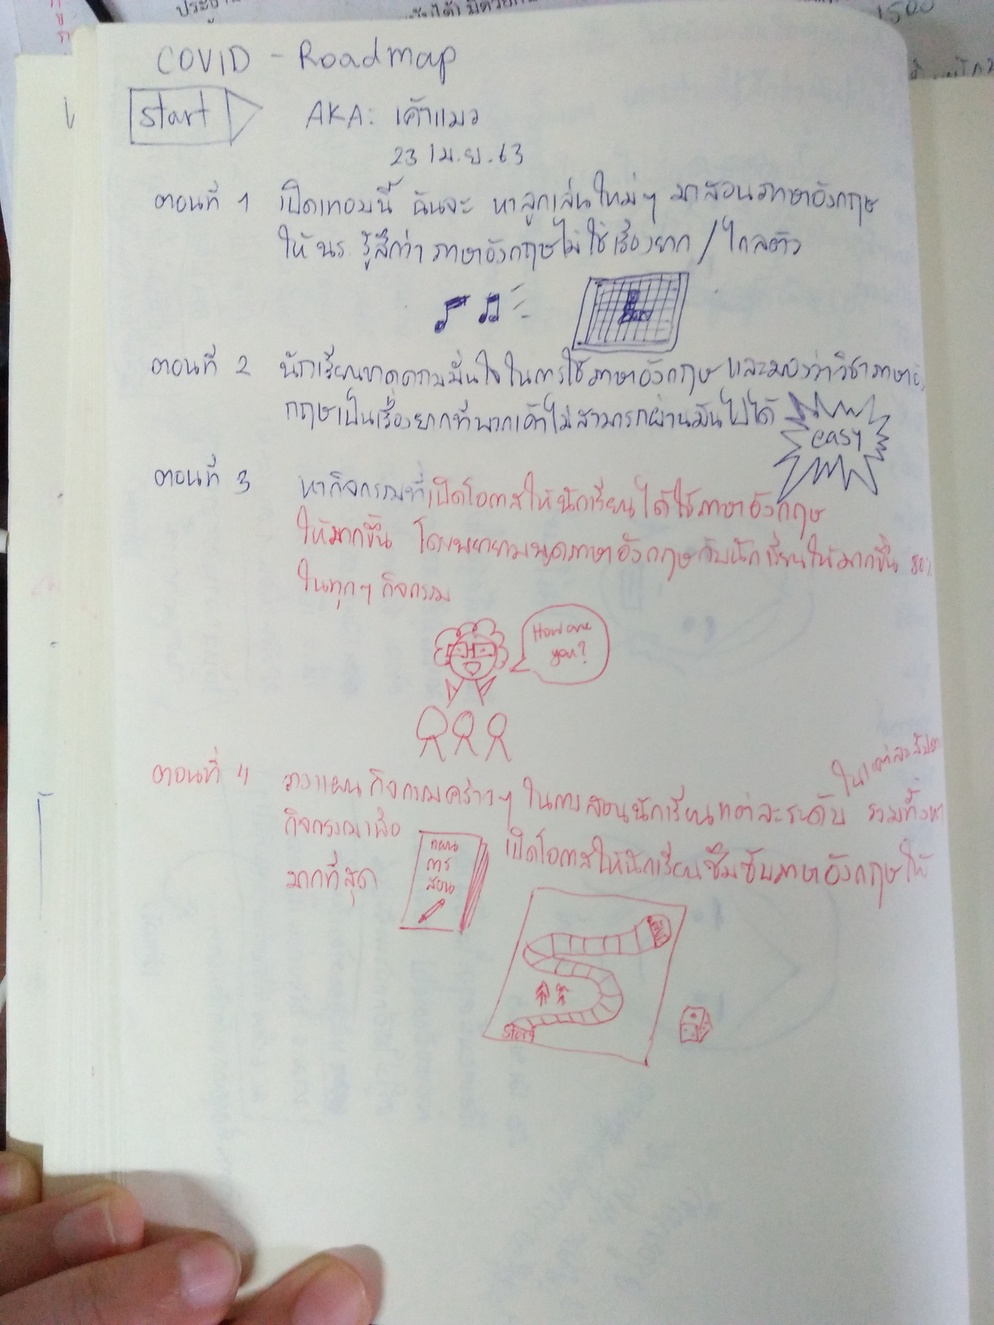 COVID - Roadmap
start
AKA: เค้าแมว
23 เม.ย. 63
ตอนที่ 1 เปิดเทอมนี้ ฉันจะ หาลูกเล่นใหม่ๆ มาสอนภาษาอังกฤษ
ให้ นร. รู้สึกว่า ภาษาอังกฤษไม่ใช่เรื่องยาก / ไกลตัว
ตอนที่ 2 นักเรียนขาดความมั่นใจในการใช้ภาษาอังกฤษ และมองว่าวิชาภาษาอัง
กฤษเป็นเรื่องยากที่พวกเค้าไม่สามารถผ่านมันไปได้
easy
ตอนที่ 3 หากิจกรรมที่เปิดโอกาสให้นักเรียนได้ใช้ภาษาอังกฤษ
ให้มากขึ้น โดยพยายามพูดภาษาอังกฤษกับนักเรียนให้มากขึ้น 80%
ในทุกๆ กิจกรรม
How are
you?
ตอนที่ 4 วางแผนกิจกรรมคร่าวๆ ในการสอนนักเรียนแต่ละระดับ ในแต่ละสัปดาห์ รวมทั้งหา
กิจกรรมเพื่อ เปิดโอกาสให้นักเรียนซึมซับภาษาอังกฤษให้
มากที่สุด
แผน
การ
สอน
start